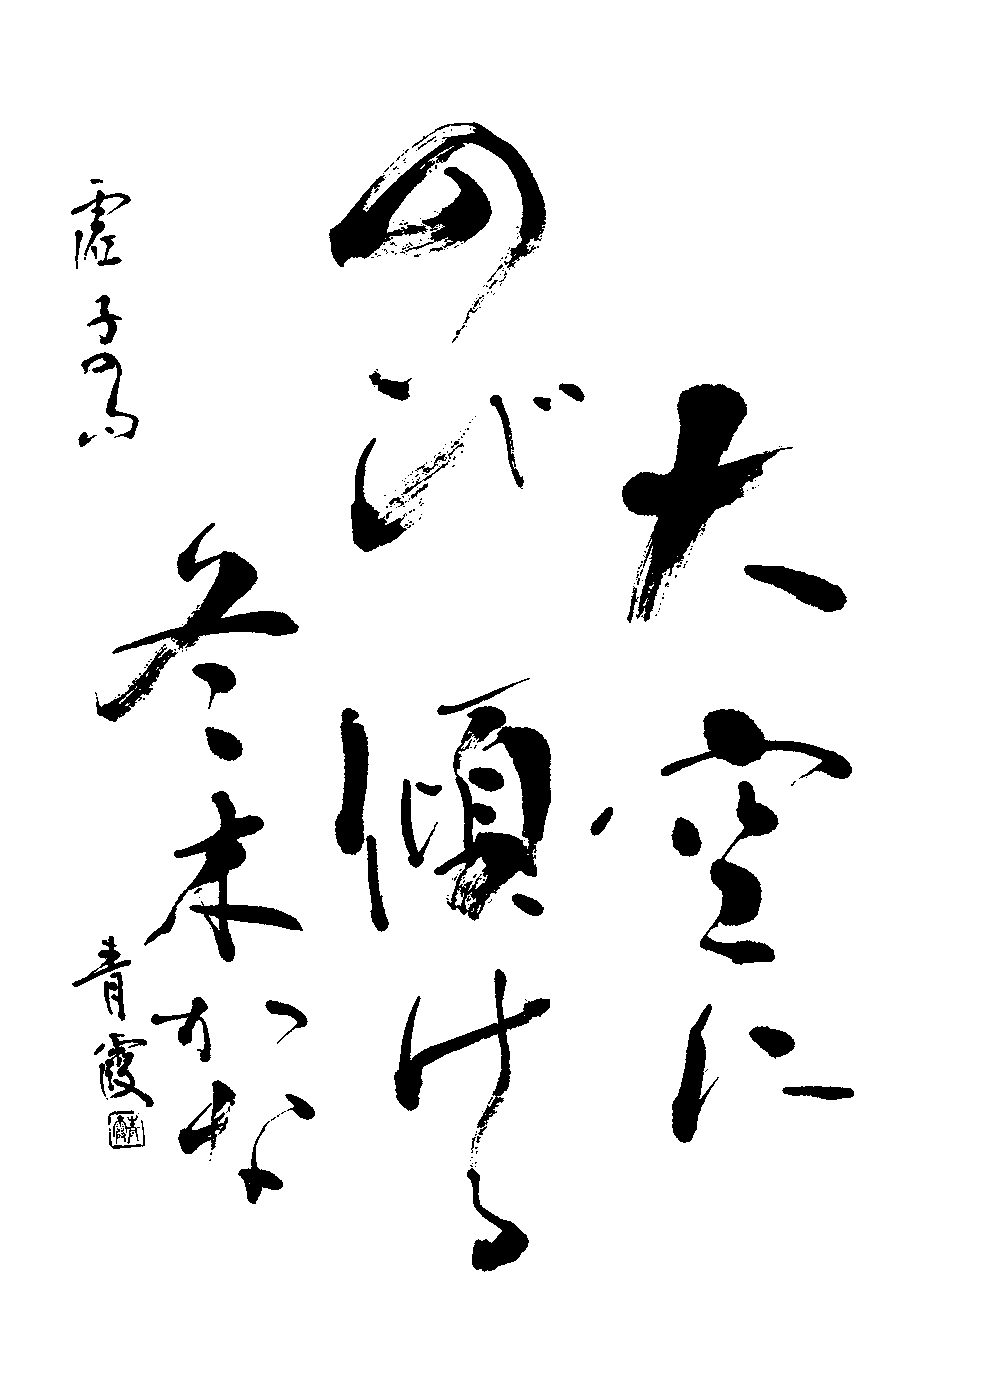 大空に
のび傾ける
冬木かな
虚子の句
青霞